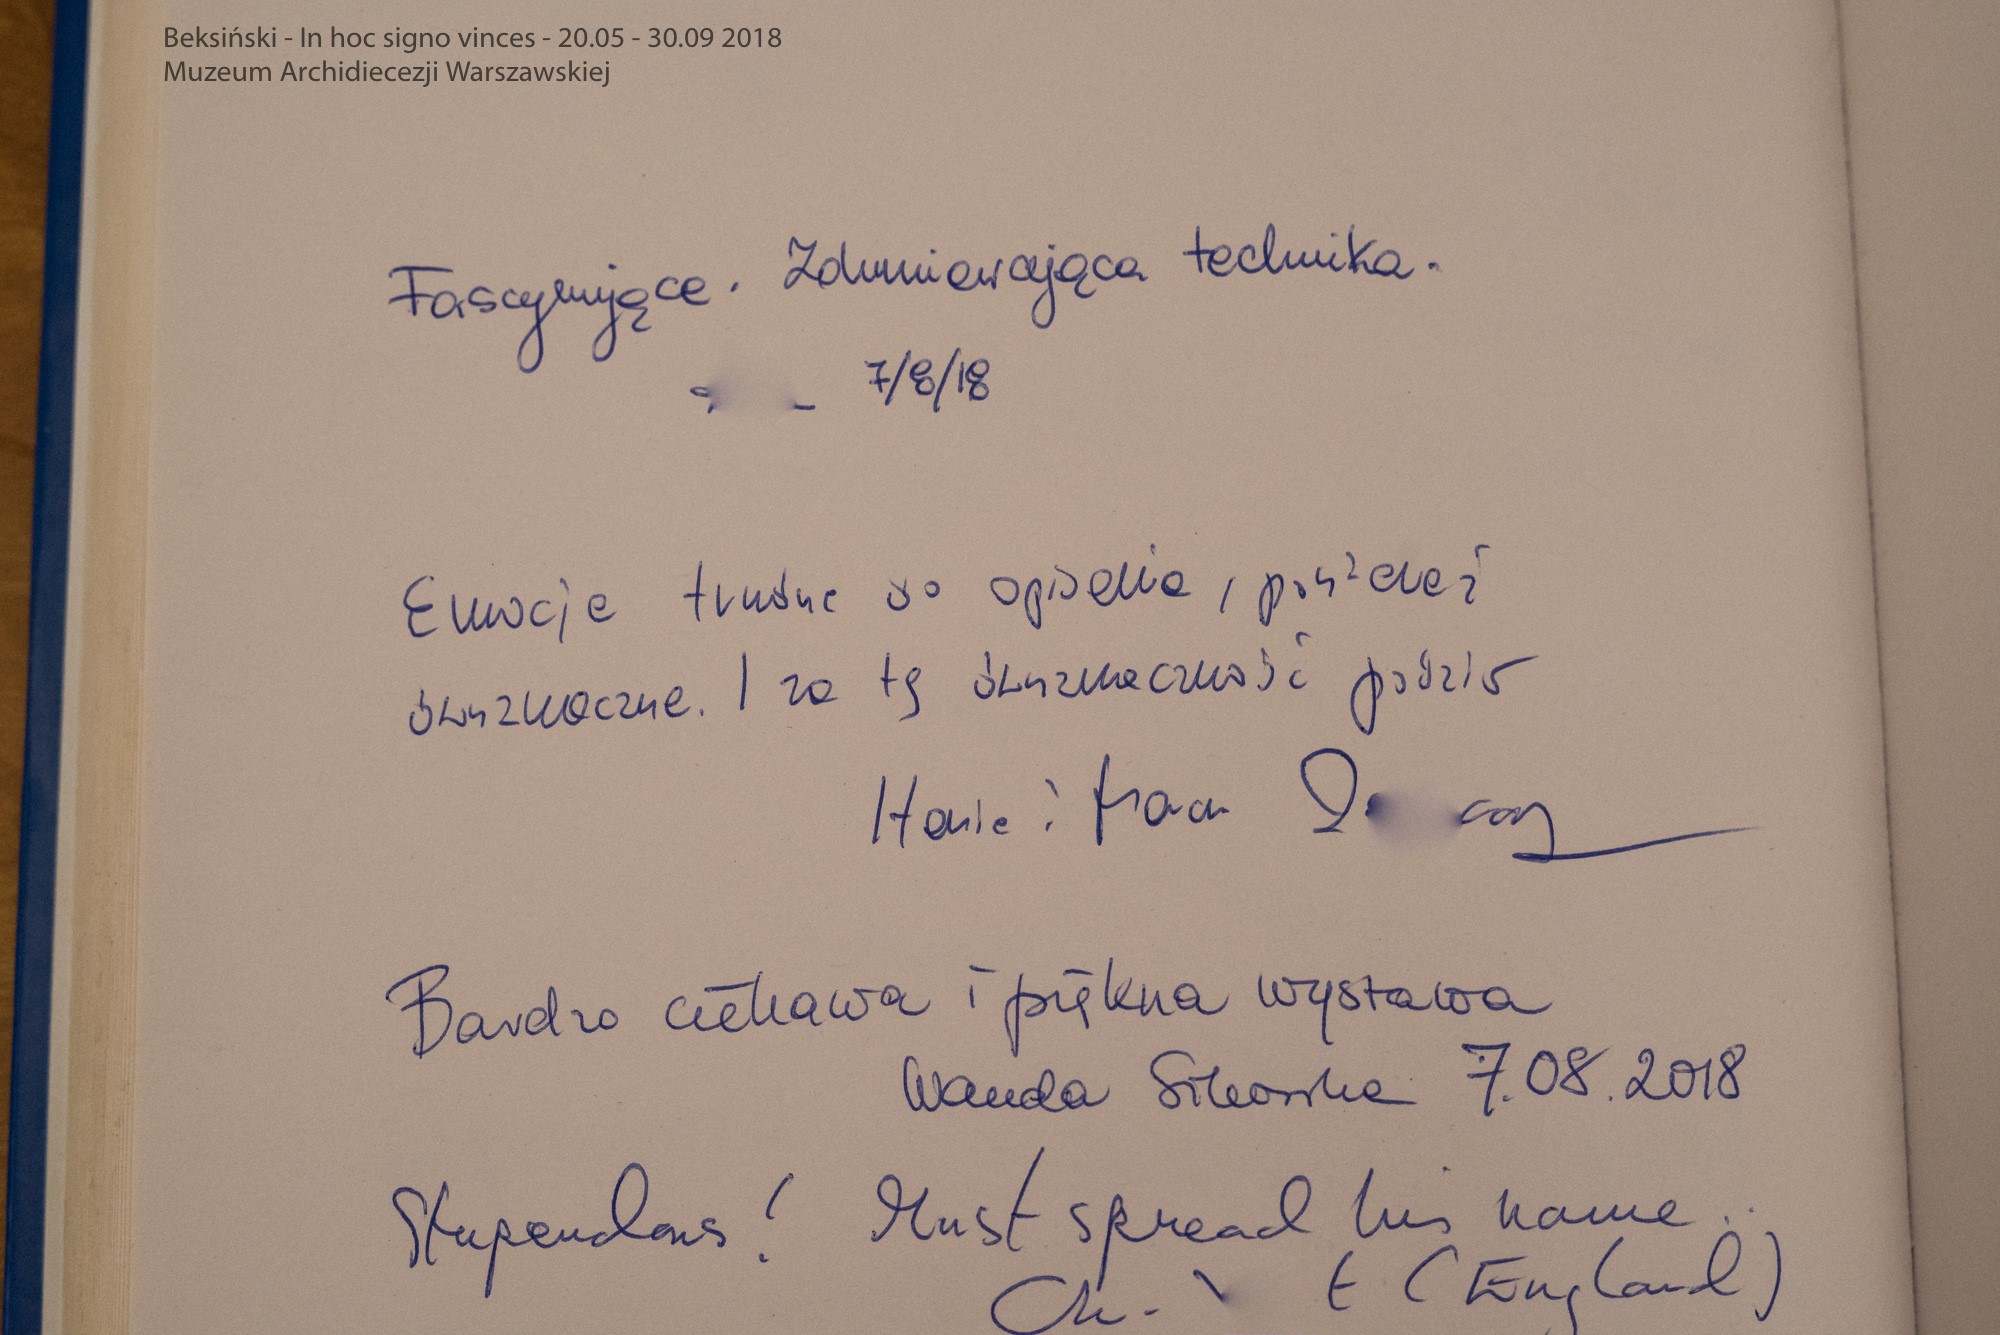 Beksiński - In hoc signo vinces - 20.05 - 30.09 2018
Muzeum Archidiecezji Warszawskiej
Fascynujące. Zdumiewająca technika.
7/8/18
Emocje trudne do opisania, ponieważ
dwuznaczne. I za tę dwuznaczność
Hania i
Bardzo ciekawa i piękna wystawa
Wanda Sikorska 7.08.2018
Stupendous! Must spread his name..
Ch. (England)